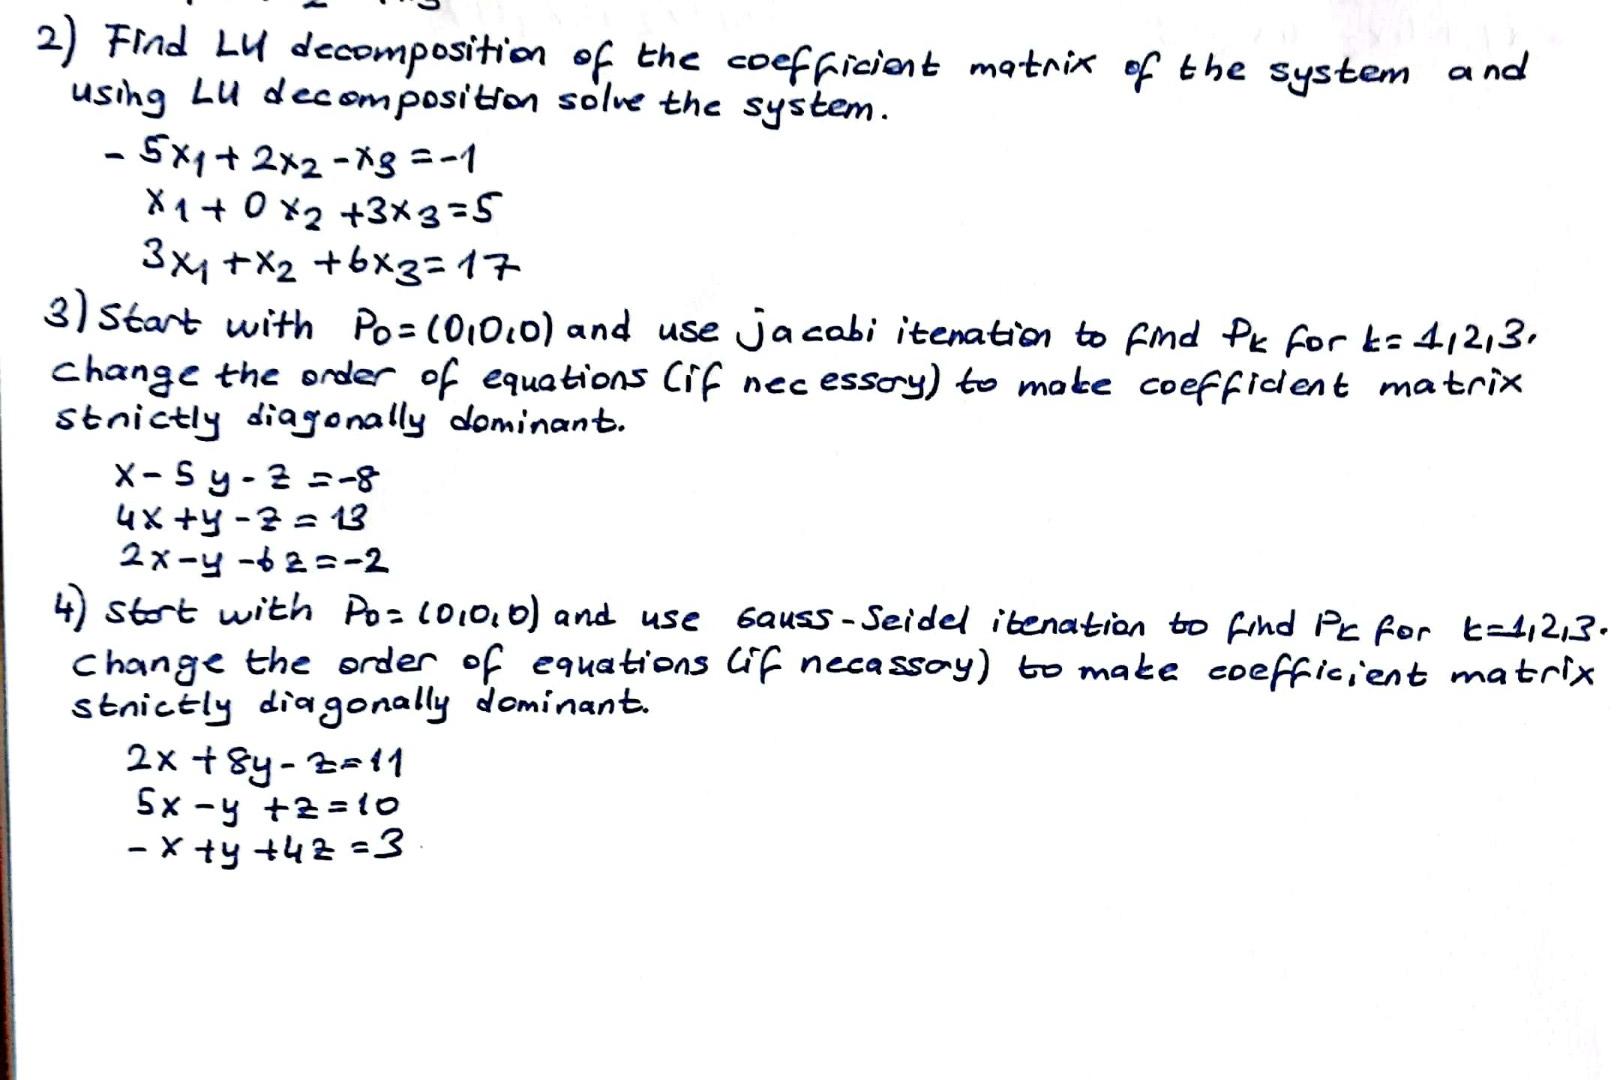 2) Find LU decomposition of the coefficient matrix of the system and
using LU decomposition solve the system.
- 5x1 + 2x2 - x3 = -1
x1 + 0 x2 + 3x3 = 5
3x1 + x2 + 6x3 = 17
3) Start with P0 = (0,0,0) and use jacabi iteration to find Pk for k = 1,2,3.
change the order of equations (if necessary) to make coefficient matrix
strictly diagonally dominant.
x - 5y - z = -8
4x + y - z = 13
2x - y - 6z = -2
4) start with P0 = (0,0,0) and use Gauss-Seidel iteration to find Pk for k=1,2,3.
change the order of equations (if necassay) to make coefficient matrix
strictly diagonally dominant.
2x + 8y - z = 11
5x - y + z = 10
- x + y + 4z = 3